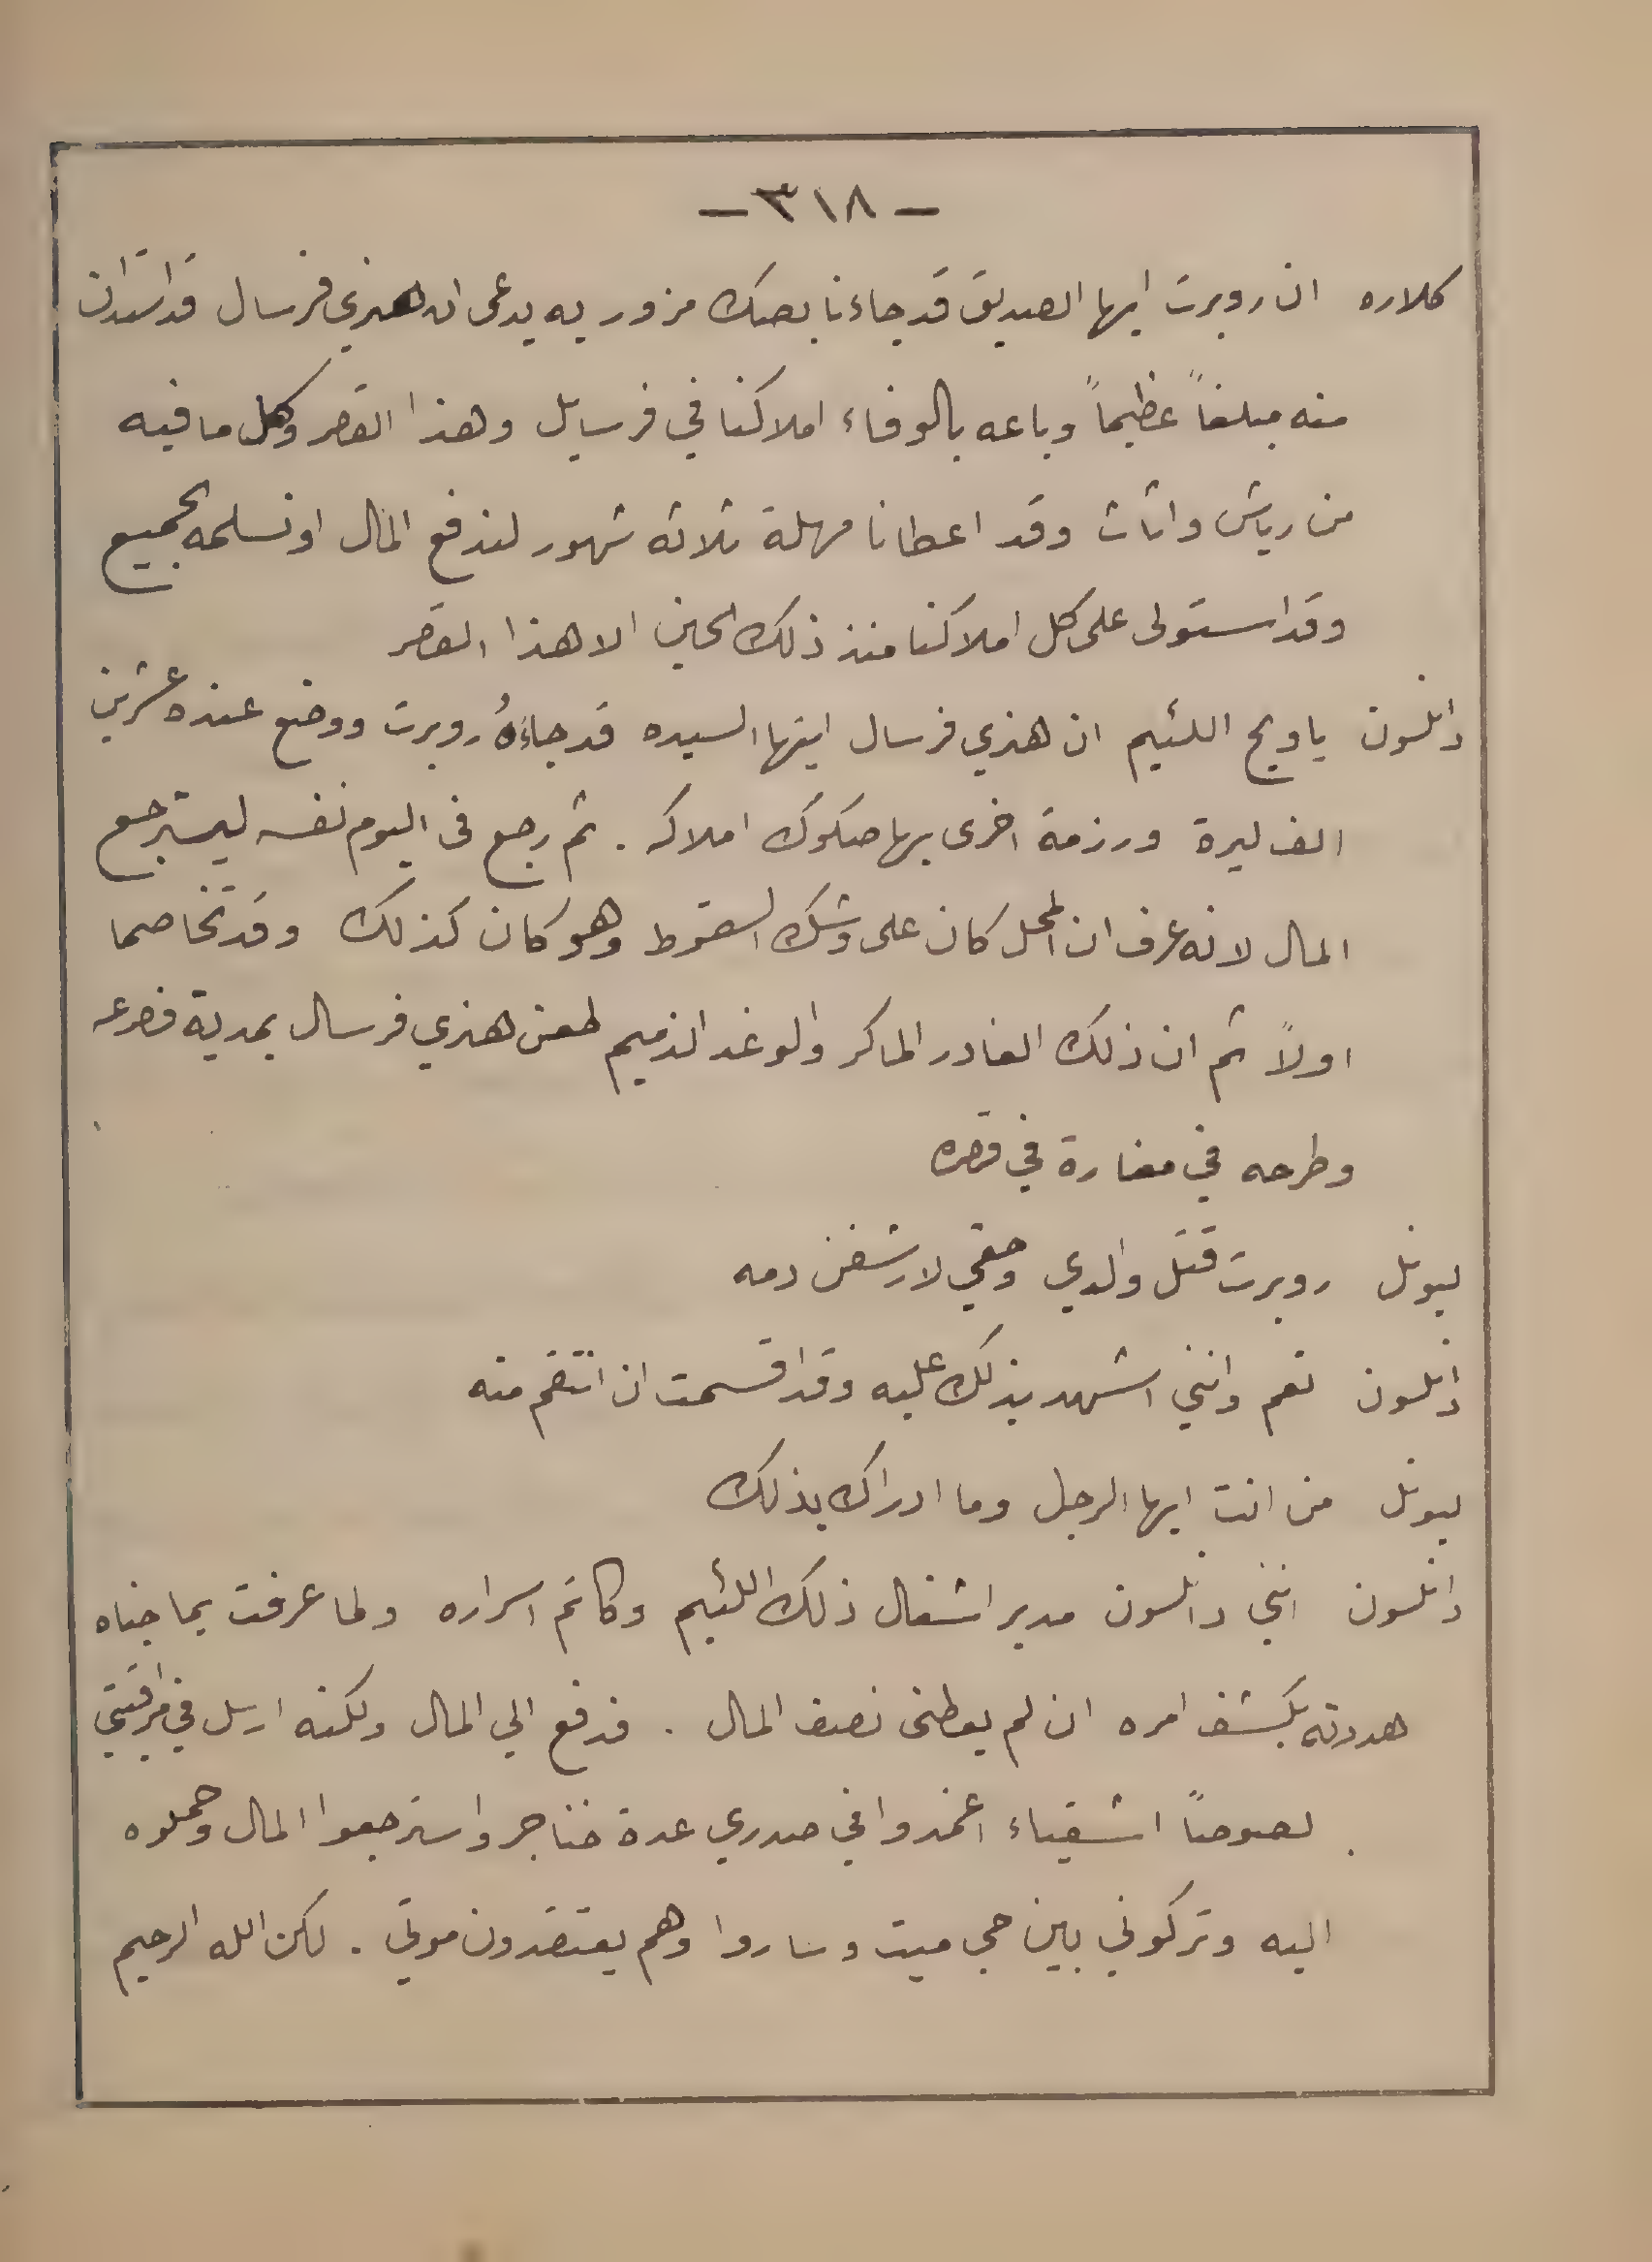 - ٣١٨ -
كلاره ان روبرت ايها الصديق قد جاءنا بصك مزور به يدعى ان هنري فرسال قد استدان
منه مبلغاً عظيماً وباعه بالوفاء املاكنا في فرسايل وهذا القصر وكل ما فيه
من رياش واثاث وقد اعطانا مهلة ثلاثه شهور لندفع المال او نسلمه الجميع
وقد استولى على كل املاكنا منذ ذلك الحين الا هذا القصر
دانلسون يا ويح اللئيم ان هنري فرسال ايتها السيده قد جاءَهُ روبرت ووضع عنده عشرين
الف ليرة ورزمة اخرى بها صكوك املاكه . ثم رجع فى اليوم نفسه ليسترجع
المال لانه عرف ان المحل كان على وشك السقوط وهو كان كذلك وقد تخاصما
اولاً ثم ان ذلك الغادر الماكر والوغد الذميم طعن هنري فرسال بمدية فصرعه
وطرحه في مغارة في قصره
ليونل روبرت قتل والدي وحقي لارشفن دمه
دانلسون نعم وانني اشهد بذلك عليه وقد اقسمت ان انتقم منه
ليونل من انت ايها الرجل وما ادراك بذلك
دانلسون انني دانلسون مدير اشغال ذلك اللئيم وكاتم اسراره ولما عرفت بما جناه
هددته بكشف امره ان لم يعطنى نصف المال . فدفع الي المال ولكنه ارسل في مرافقتي
لصوصاً اشقياء اغمدوا في صدري عدة خناجر واسترجعوا المال وحملوه
اليه وتركوني بين حي ميت وساروا وهم يعتقدون موتي . لكن الله الرحيم